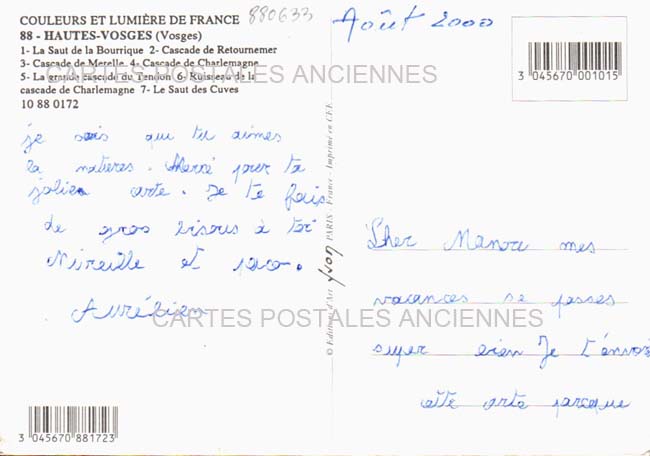 COULEURS ET LUMIÈRE DE FRANCE
88 - HAUTES-VOSGES (Vosges)
1- La Saut de la Bourrique 2- Cascade de Retournemer
3- Cascade de Merelle 4- Cascade de Charlemagne
5- La grande cascade du Tendon 6- Ruisseau de la
cascade de Charlemagne 7- Le Saut des Cuves
10 88 0172
880633
Août 2000
3 045670 001015
CARTES POSTALES ANCIENNES
je sais que tu aimes
la natieres. Merci pour ta
jolie carte. Je te fais
de gros bisous à toi
Mireille et paco.
Aurélien
© Editions d'Art yvon PARIS - France - Imprimé en CEE
Cher Manou mes
vacances se passes
super bien Je t'envoi
cette carte parceque
CARTES POSTALES ANCIENNES
3 045670 881723